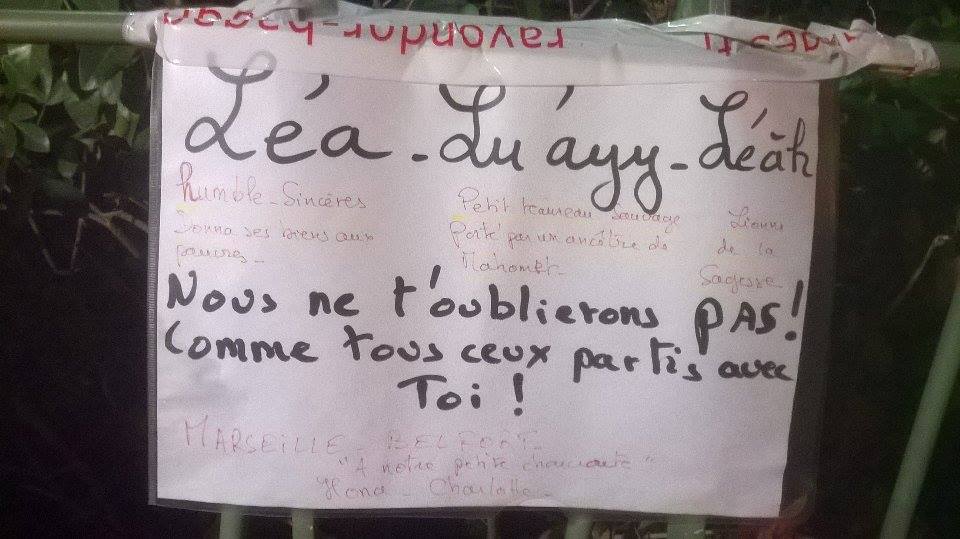 Léa - Lu'ayy - Lé'āh
humble - Sincères
Donna ses biens aux
pauvres -
Petit taureau sauvage
Porté par un ancêtre de
Mahomet -
Lionne
de la
Sagesse
Nous ne t'oublierons PAS !
Comme tous ceux partis avec
Toi !
MARSEILLE - BELFORT -
"A notre petite "
- Charlotte -